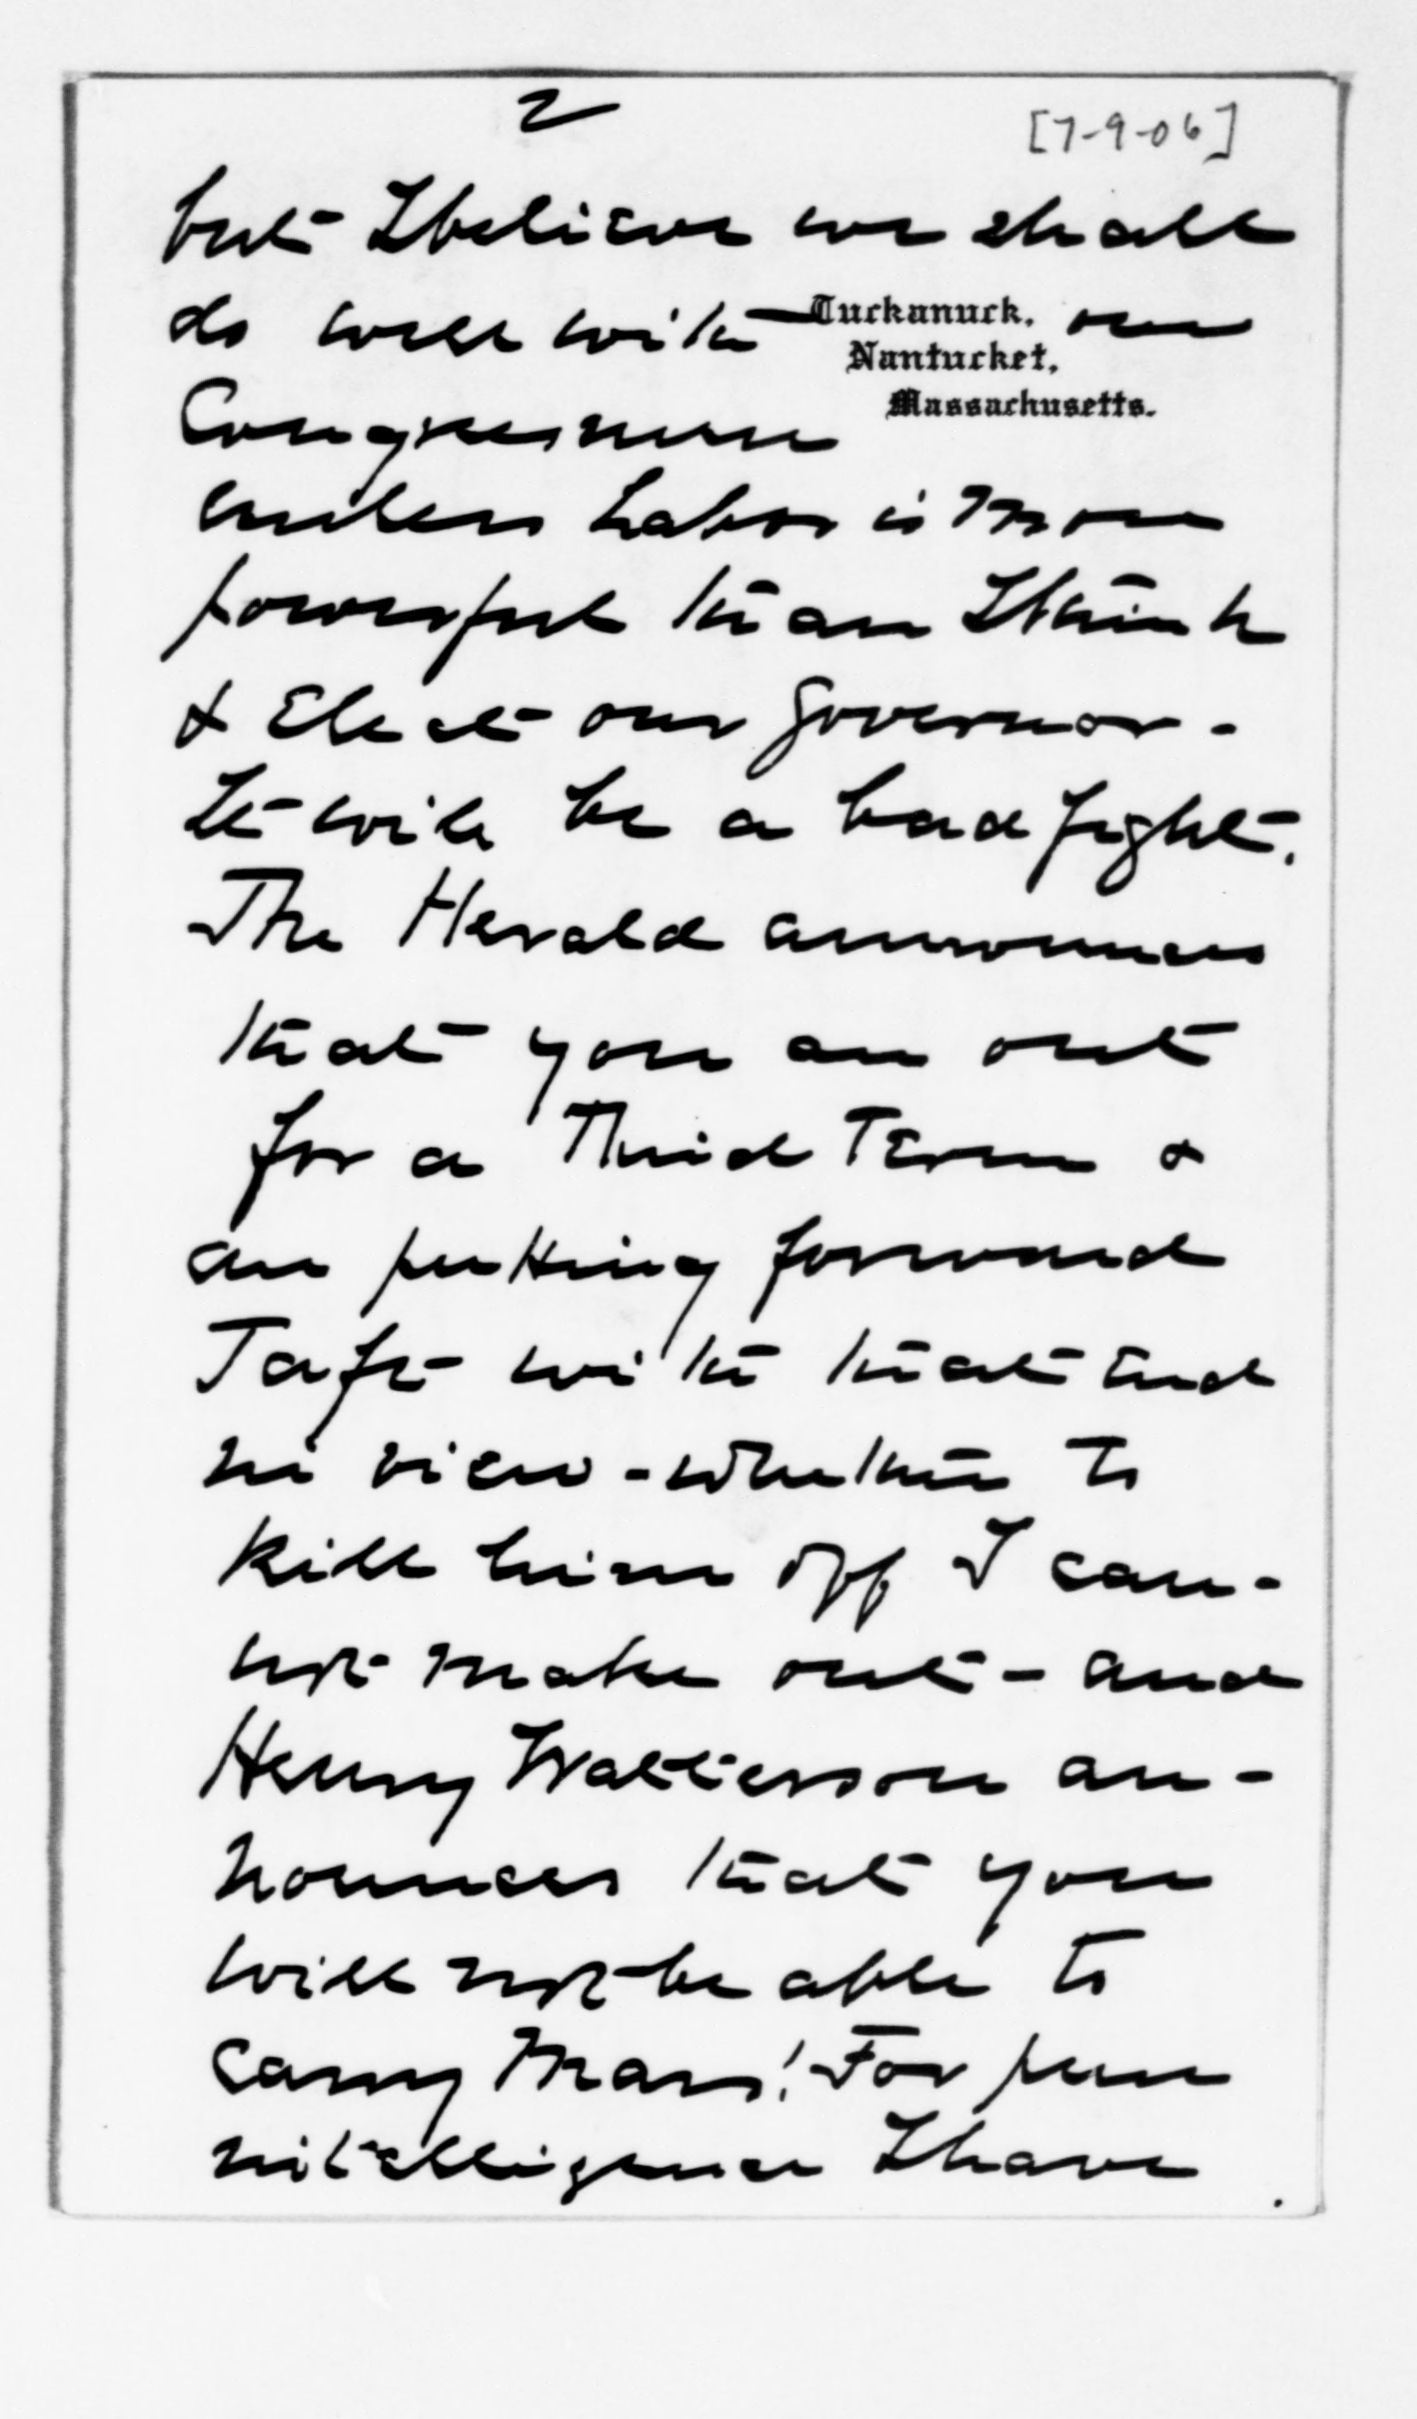 2
[7-9-06]
but I believe we shall
do well with our
Tuckanuck,
Nantucket,
Massachusetts.
Congressmen
unless Labor is more
powerful than I think
& Elect our Governor -
It will be a hard fight.
The Herald announces
that you are out
for a Third Term &
are putting forward
Taft with that end
in view - whether to
kill him off I can-
not make out - and
Henry Watterson an-
nounces that you
will not be able to
carry Mass! For pure
intelligence I have